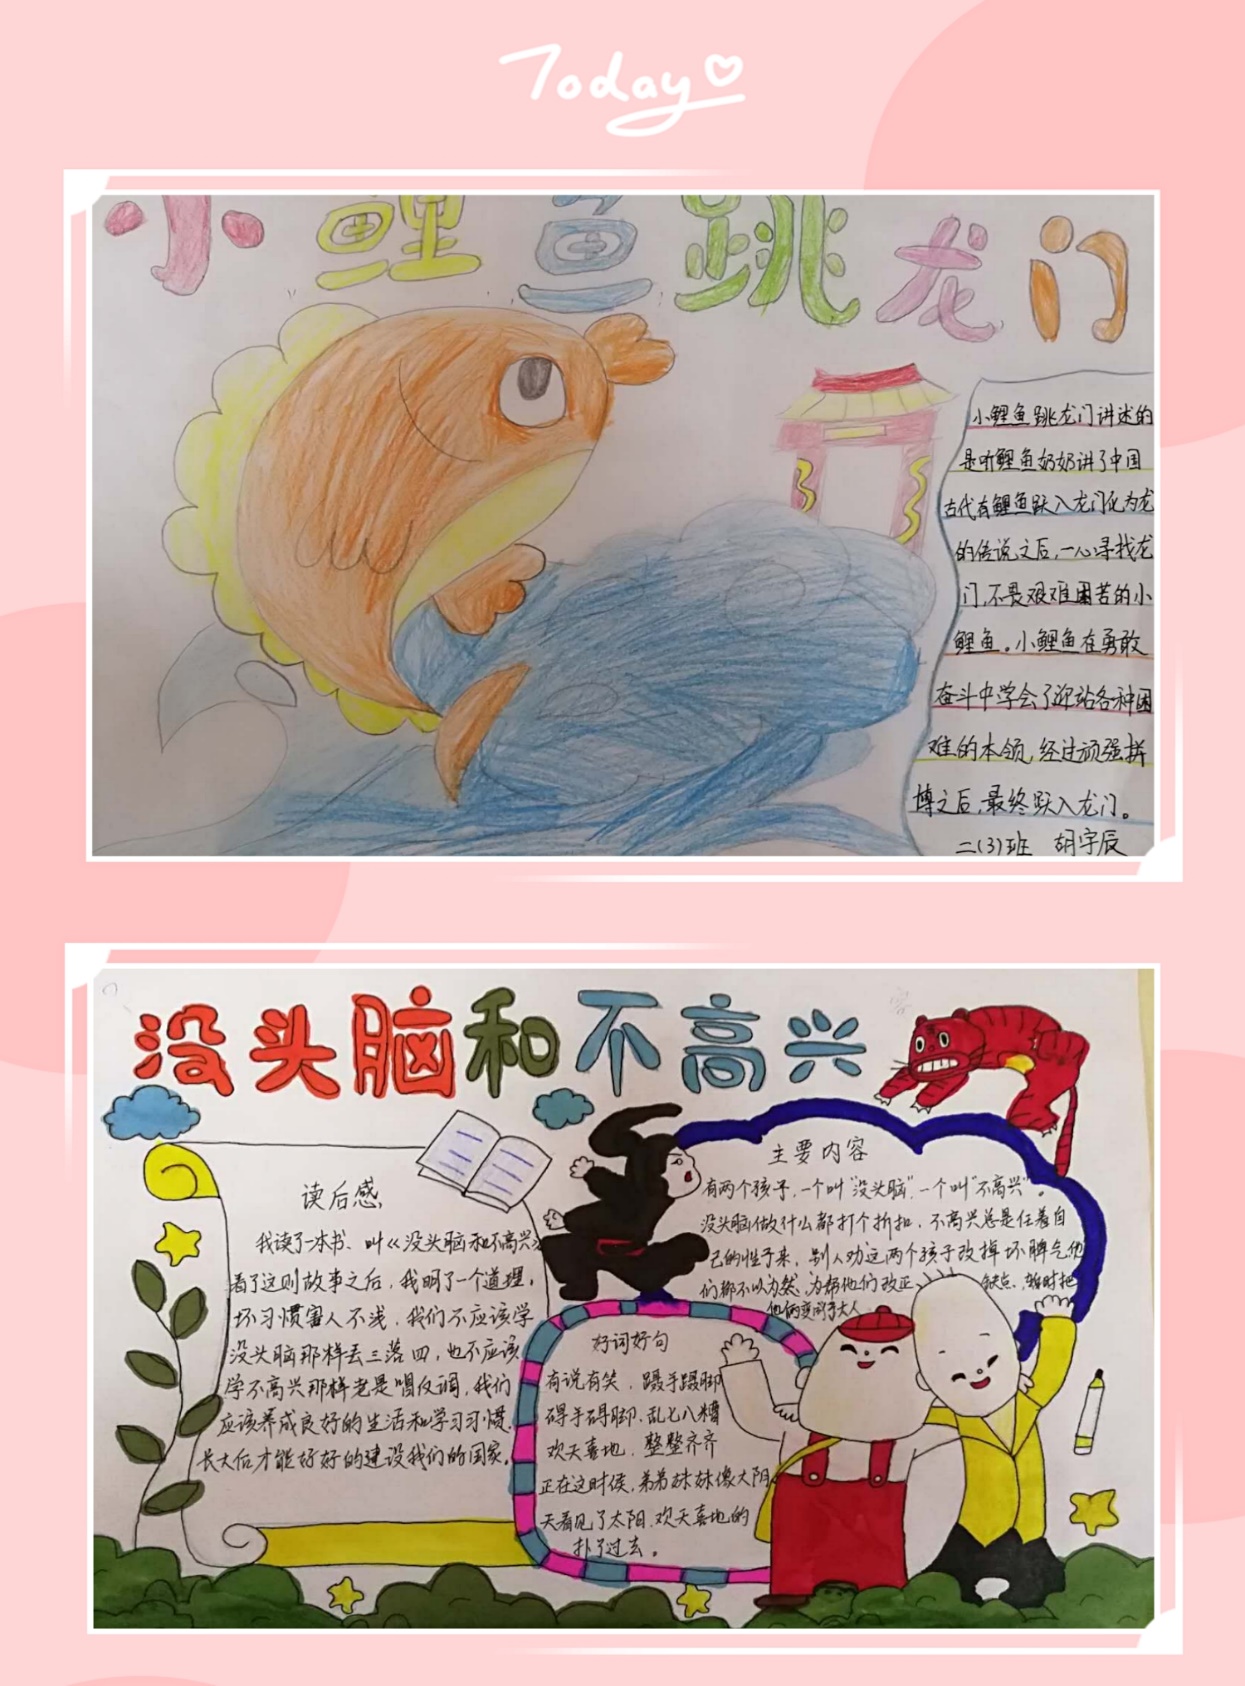 Today
小鲤鱼跳龙门
小鲤鱼跳龙门讲述的
是听鲤鱼奶奶讲了中国
古代有鲤鱼跃入龙门化为龙
的传说之后,一心寻找龙
门,不畏艰难困苦的小
鲤鱼。小鲤鱼在勇敢
奋斗中学会了迎站各种困
难的本领,经过顽强拼
博之后,最终跃入龙门。
二(3)班 胡宇辰
没头脑和不高兴
读后感
我读了一本书、叫《没头脑和不高兴》
看了这则故事之后,我明了一个道理,
坏习惯害人不浅,我们不应该学
没头脑那样丢三落四,也不应该
学不高兴那样老是唱反调,我们
应该养成良好的生活和学习习惯,
长大后才能好好的建设我们的国家。
主要内容
有两个孩子,一个叫"没头脑",一个叫"不高兴"。
没头脑做什么都打个折扣,不高兴总是任着自
己的性子来,别人劝这两个孩子改掉坏脾气他
们都不以为然,为帮他们改正缺点,暂时把
他俩变成了大人。
好词好句
有说有笑,蹑手蹑脚
碍手碍脚,乱七八糟
欢天喜地,整整齐齐
正在这时候,弟弟妹妹像大阴
天看见了太阳,欢天喜地的
扑了过去。